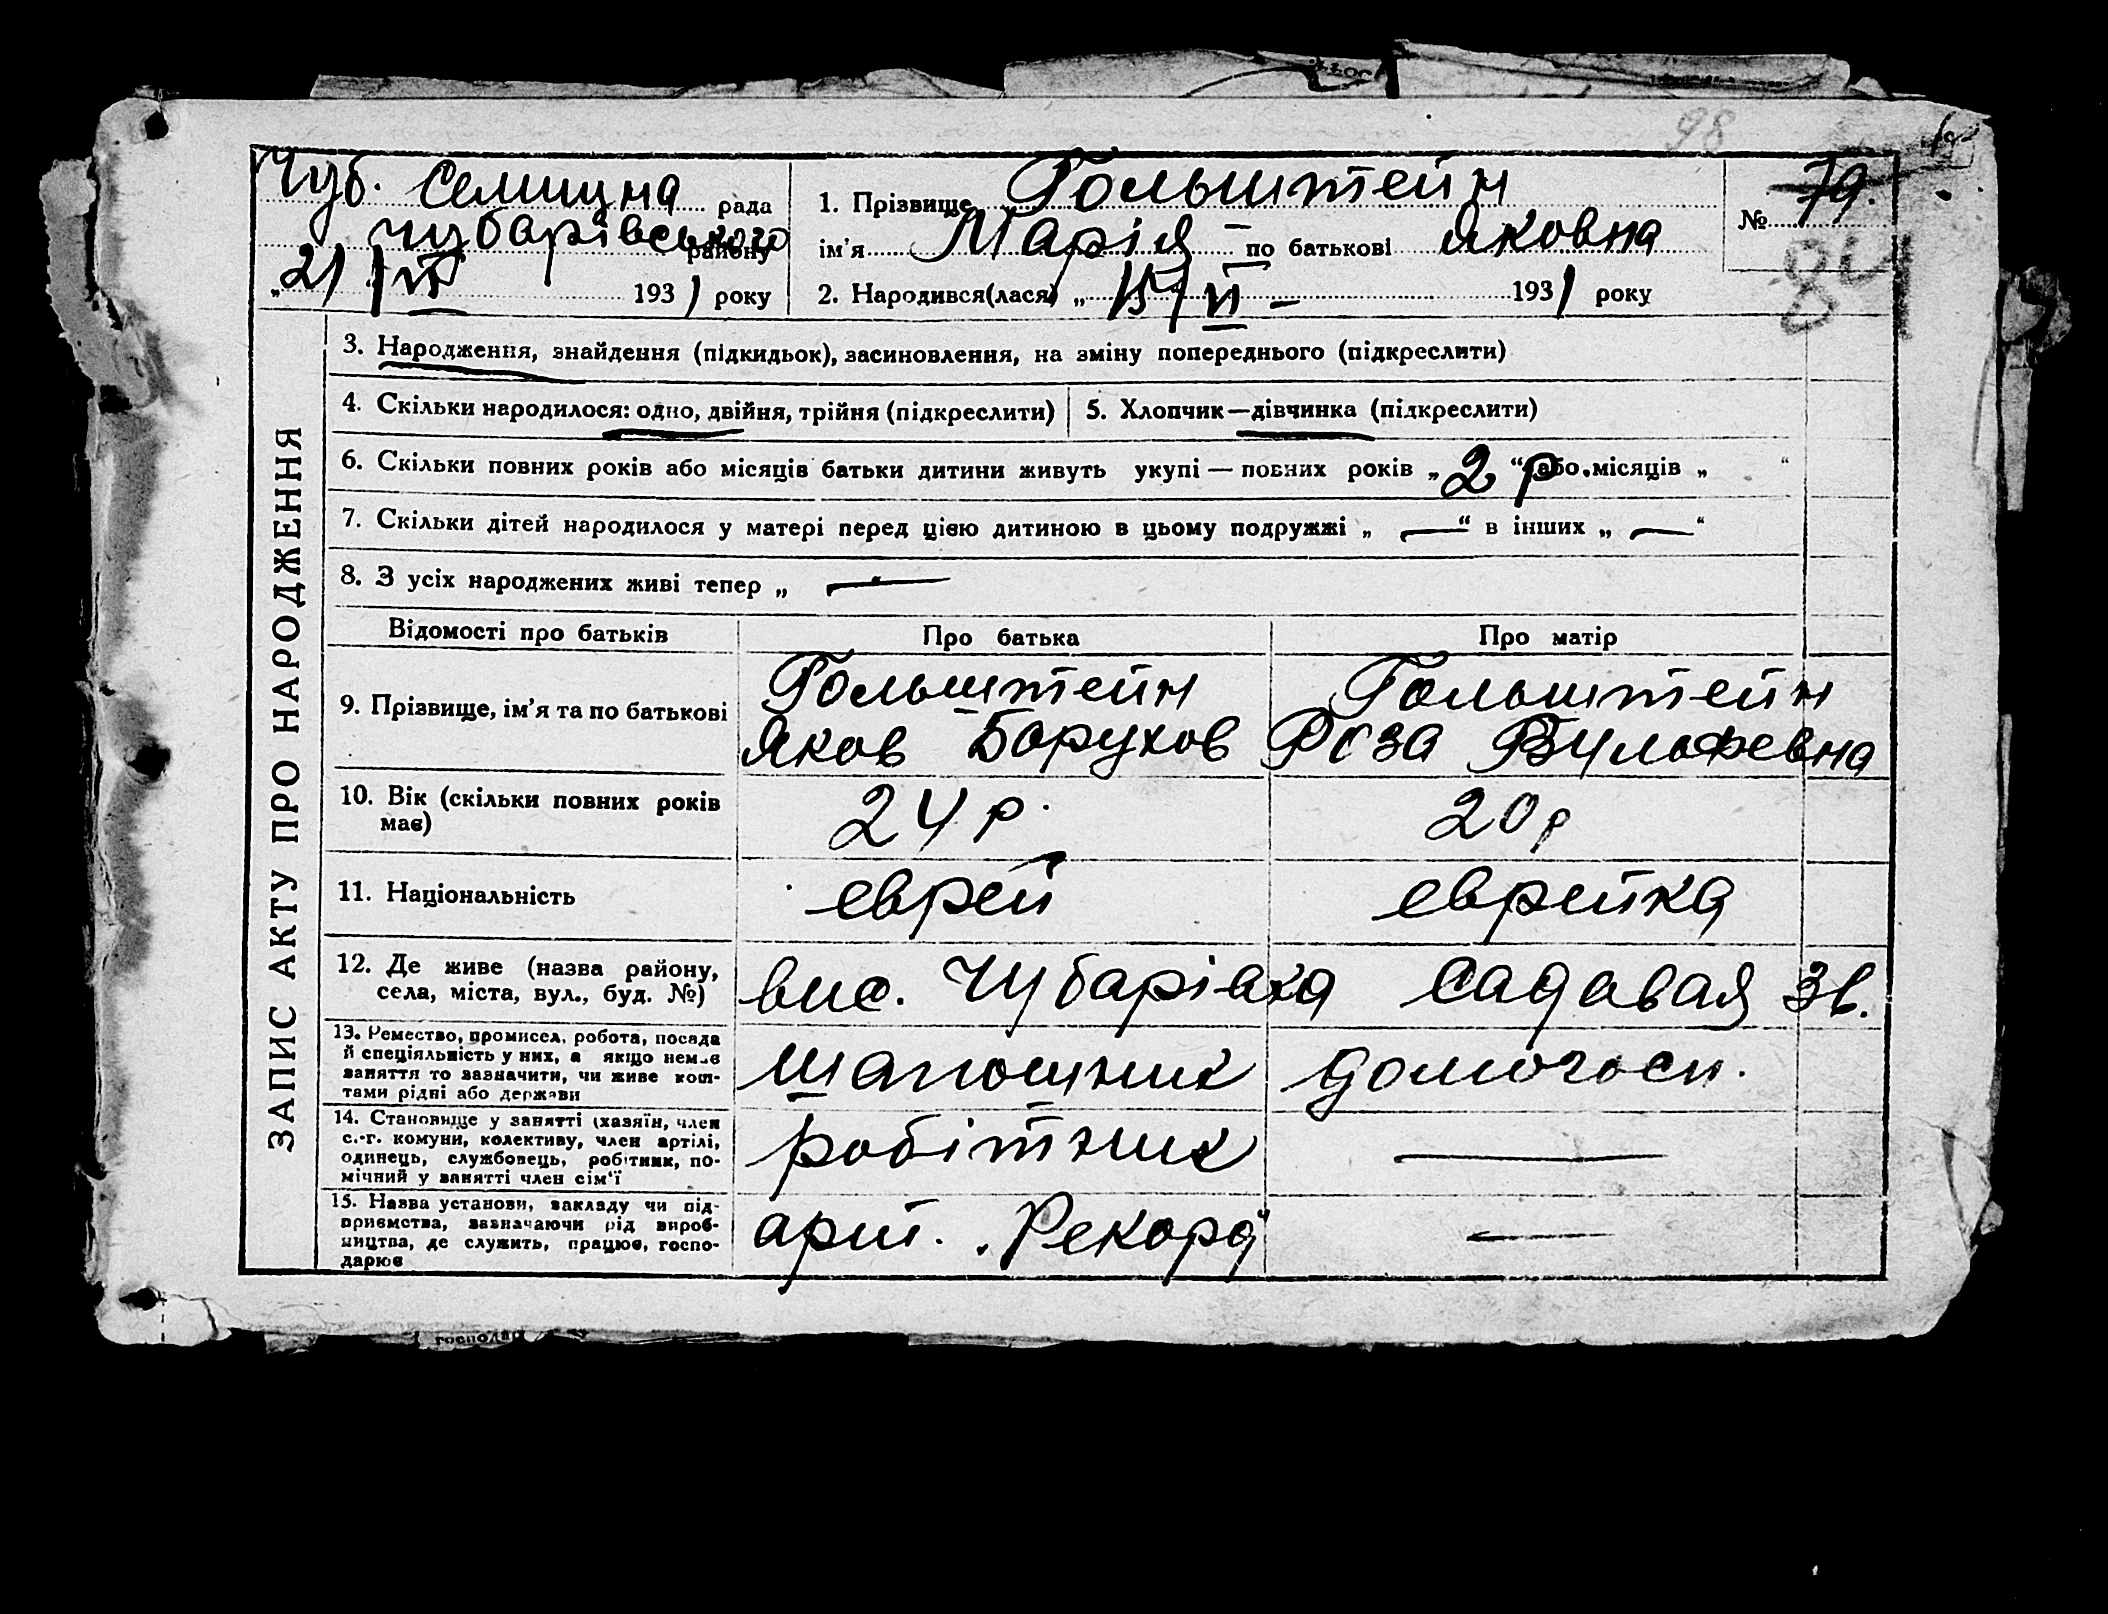 98
Чуб. Селищна рада
Чубарівського району
„21/VI 1931 року
1. Прізвище Гольштейн
ім’я Марія по батькові Яковна
2. Народився(лася) „15/VI – 1931 року
№ 79.
84
ЗАПИС АКТУ ПРО НАРОДЖЕННЯ
3. Народження, знайдення (підкидьок), засиновлення, на зміну попереднього (підкреслити)
4. Скільки народилося: одно, двійня, трійня (підкреслити)
5. Хлопчик—дівчинка (підкреслити)
6. Скільки повних років або місяців батьки дитини живуть укупі — повних років „2 р“ або місяців „ “
7. Скільки дітей народилося у матері перед цією дитиною в цьому подружжі „—“ в інших „—“
8. З усіх народжених живі тепер „—“
Відомості про батьків Про батька Про матір
9. Прізвище, ім’я та по батькові
Гольштейн
Яков Борухов
Гольштейн
Роза Вульфевна
10. Вік (скільки повних років
має)
24 р.
20 р
11. Національність
еврей
еврейка
12. Де живе (назва району,
села, міста, вул., буд. №)
вис. Чубарівка Садавая 36.
13. Ремество, промисел, робота, посада
й спеціяльність у них, а якщо немає
заняття то зазначити, чи живе кош-
тами рідні або держави
Шапошник
домогосп.
14. Становище у занятті (хазяїн, член
с.-г. комуни, колективу, член артілі,
одинець, службовець, робітник, по-
мічний у занятті член сім’ї
робітник
—
15. Назва установи, закладу чи під-
приємства, зазначаючи рід вироб-
ництва, де служить, працює, госпо-
дарює
арт. „Рекорд“
—
господар